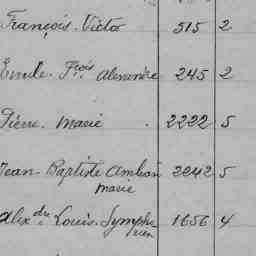 François. Victor 515 2
Emile. Frois Alexandre 245 2
Pierre. Marie . 2222 5
Jean-Baptiste Ambroi 2242 5
marie
Alexdre Louis. Sympho 1656 4
rien